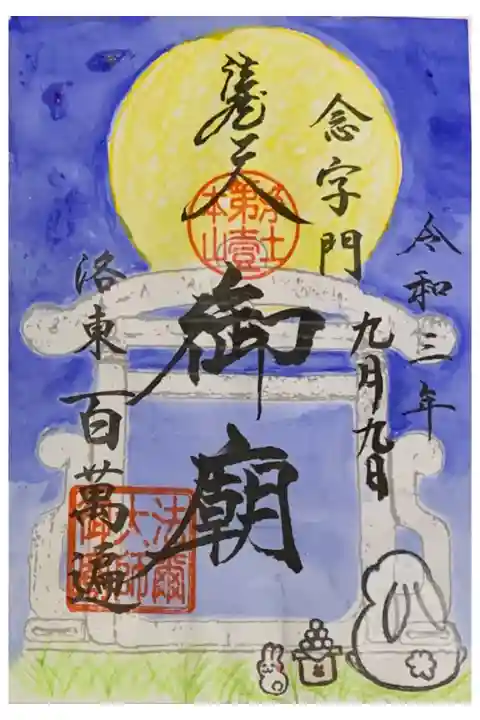 令和三年
九月九日
念字門
浄土
第壹
本山
御廟
洛東百萬遍
法爾
大師
御廟